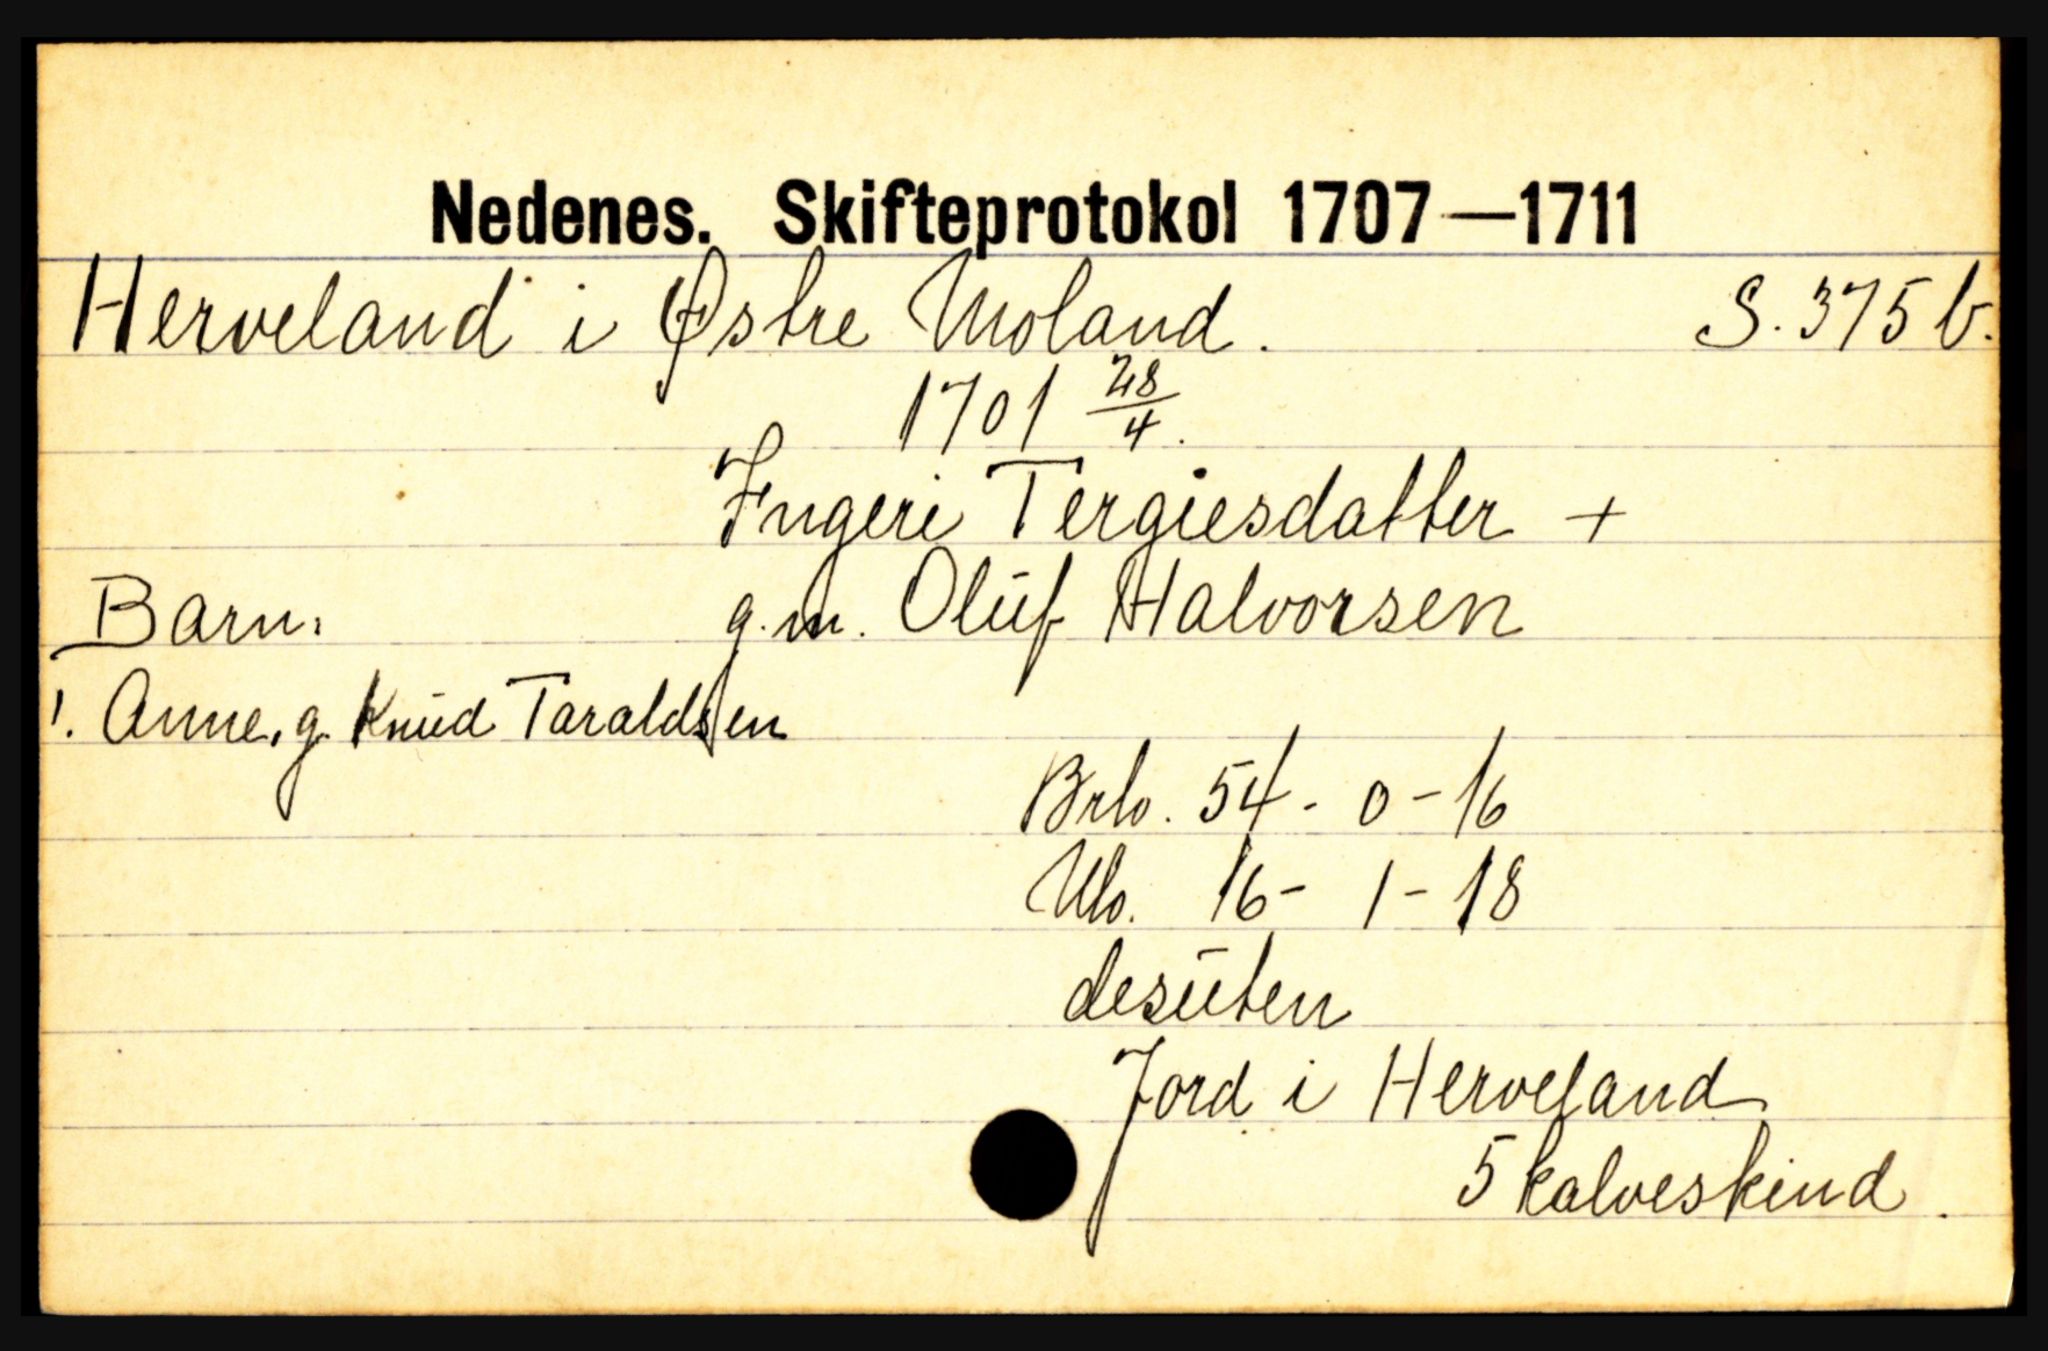 Nedenes. Skifteprotokol 1707—1711
Herveland i Østre Moland. S. 375 b.
1701 28/4.
Ingeri Tergiesdatter +
Barn: g.m. Oluf Halvorsen
1. Anne, g. Knud Taraldsen
Brlo. 54 - 0 - 16
Nlo. 16 - 1 - 18
desuten
Jord i Herveland
5 kalveskind.